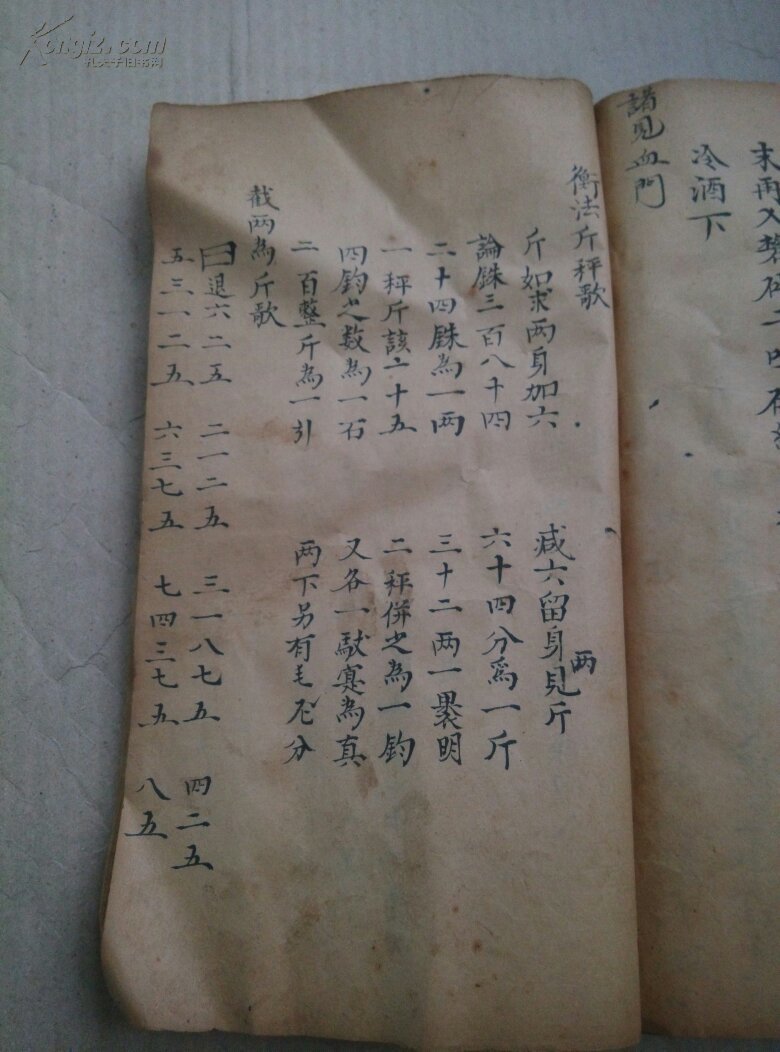 末再入
冷酒下
諸見血門
衡法斤秤歌
斤如求两身加六 减六留身两見斤
論銖三百八十四 六十四分爲一斤
二十四銖為一两 三十二两一裹明
一秤斤該二十五 二秤併之為一鈞
四鈞之数為一石 又各一馱寔為真
二百整斤為一引 两下另有毛厘分
截两為斤歌
一退六二五 二一二五 三一八七五 四二五
五三一二五 六三七五 七四三七五 八五
Kongfz.com
孔夫子旧书网